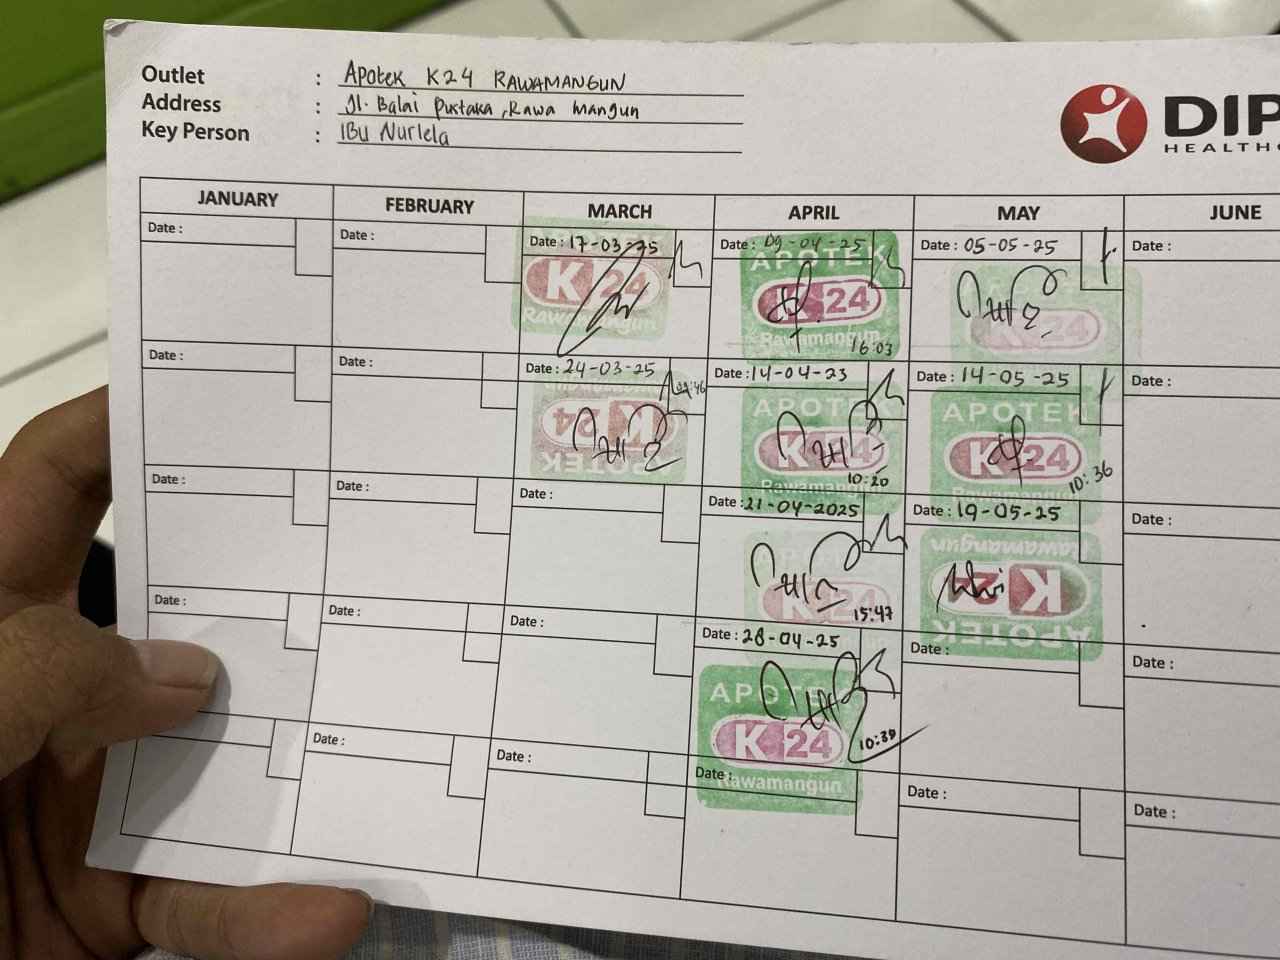 Outlet : Apotek K24 RAWAMANGUN
Address : Jl. Balai Pustaka, Rawa Mangun
Key Person : IBU Nurlela
DIP
HEALTHC
JANUARY FEBRUARY MARCH APRIL MAY JUNE
Date : Date : Date : 17-03-25 Date : 09-04-25 Date : 05-05-25 Date :
APOTEK K 24 Rawamangun APOTEK K 24 Rawamangun 16:03 K 24
Date : Date : Date : 24-03-25 Date : 14-04-23 Date : 14-05-25 Date :
09:46 K 24 APOTEK APOTEK K 24 Rawamangun 10:20 APOTEK K 24 Rawamangun 10:36
Date : Date : Date : Date : 21-04-2025 Date : 19-05-25 Date :
K 24 15:47 Rawamangun K 24 APOTEK
Date : Date : Date : Date : 28-04-25 Date : Date :
APOTEK K 24 Rawamangun 10:39
Date : Date : Date : Date : Date :